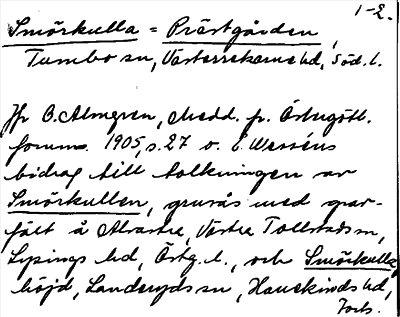 1-2.
Smörkulla = Prästgården,
Tumbo sn, Västerrekarne hd, Söd. l.
Jfr O. Almgren, Medd. fr. Östergötl.
fornm. 1905, s. 27 o. E. Wesséns
bidrag till tolkningen av
Smörkullen, grusås med grav-
fält å Alvastra, Västra Tollstad sn,
Lysings hd, Östg. l., och Smörkulla
höjd, Landeryds sn, Hanekinds hd,